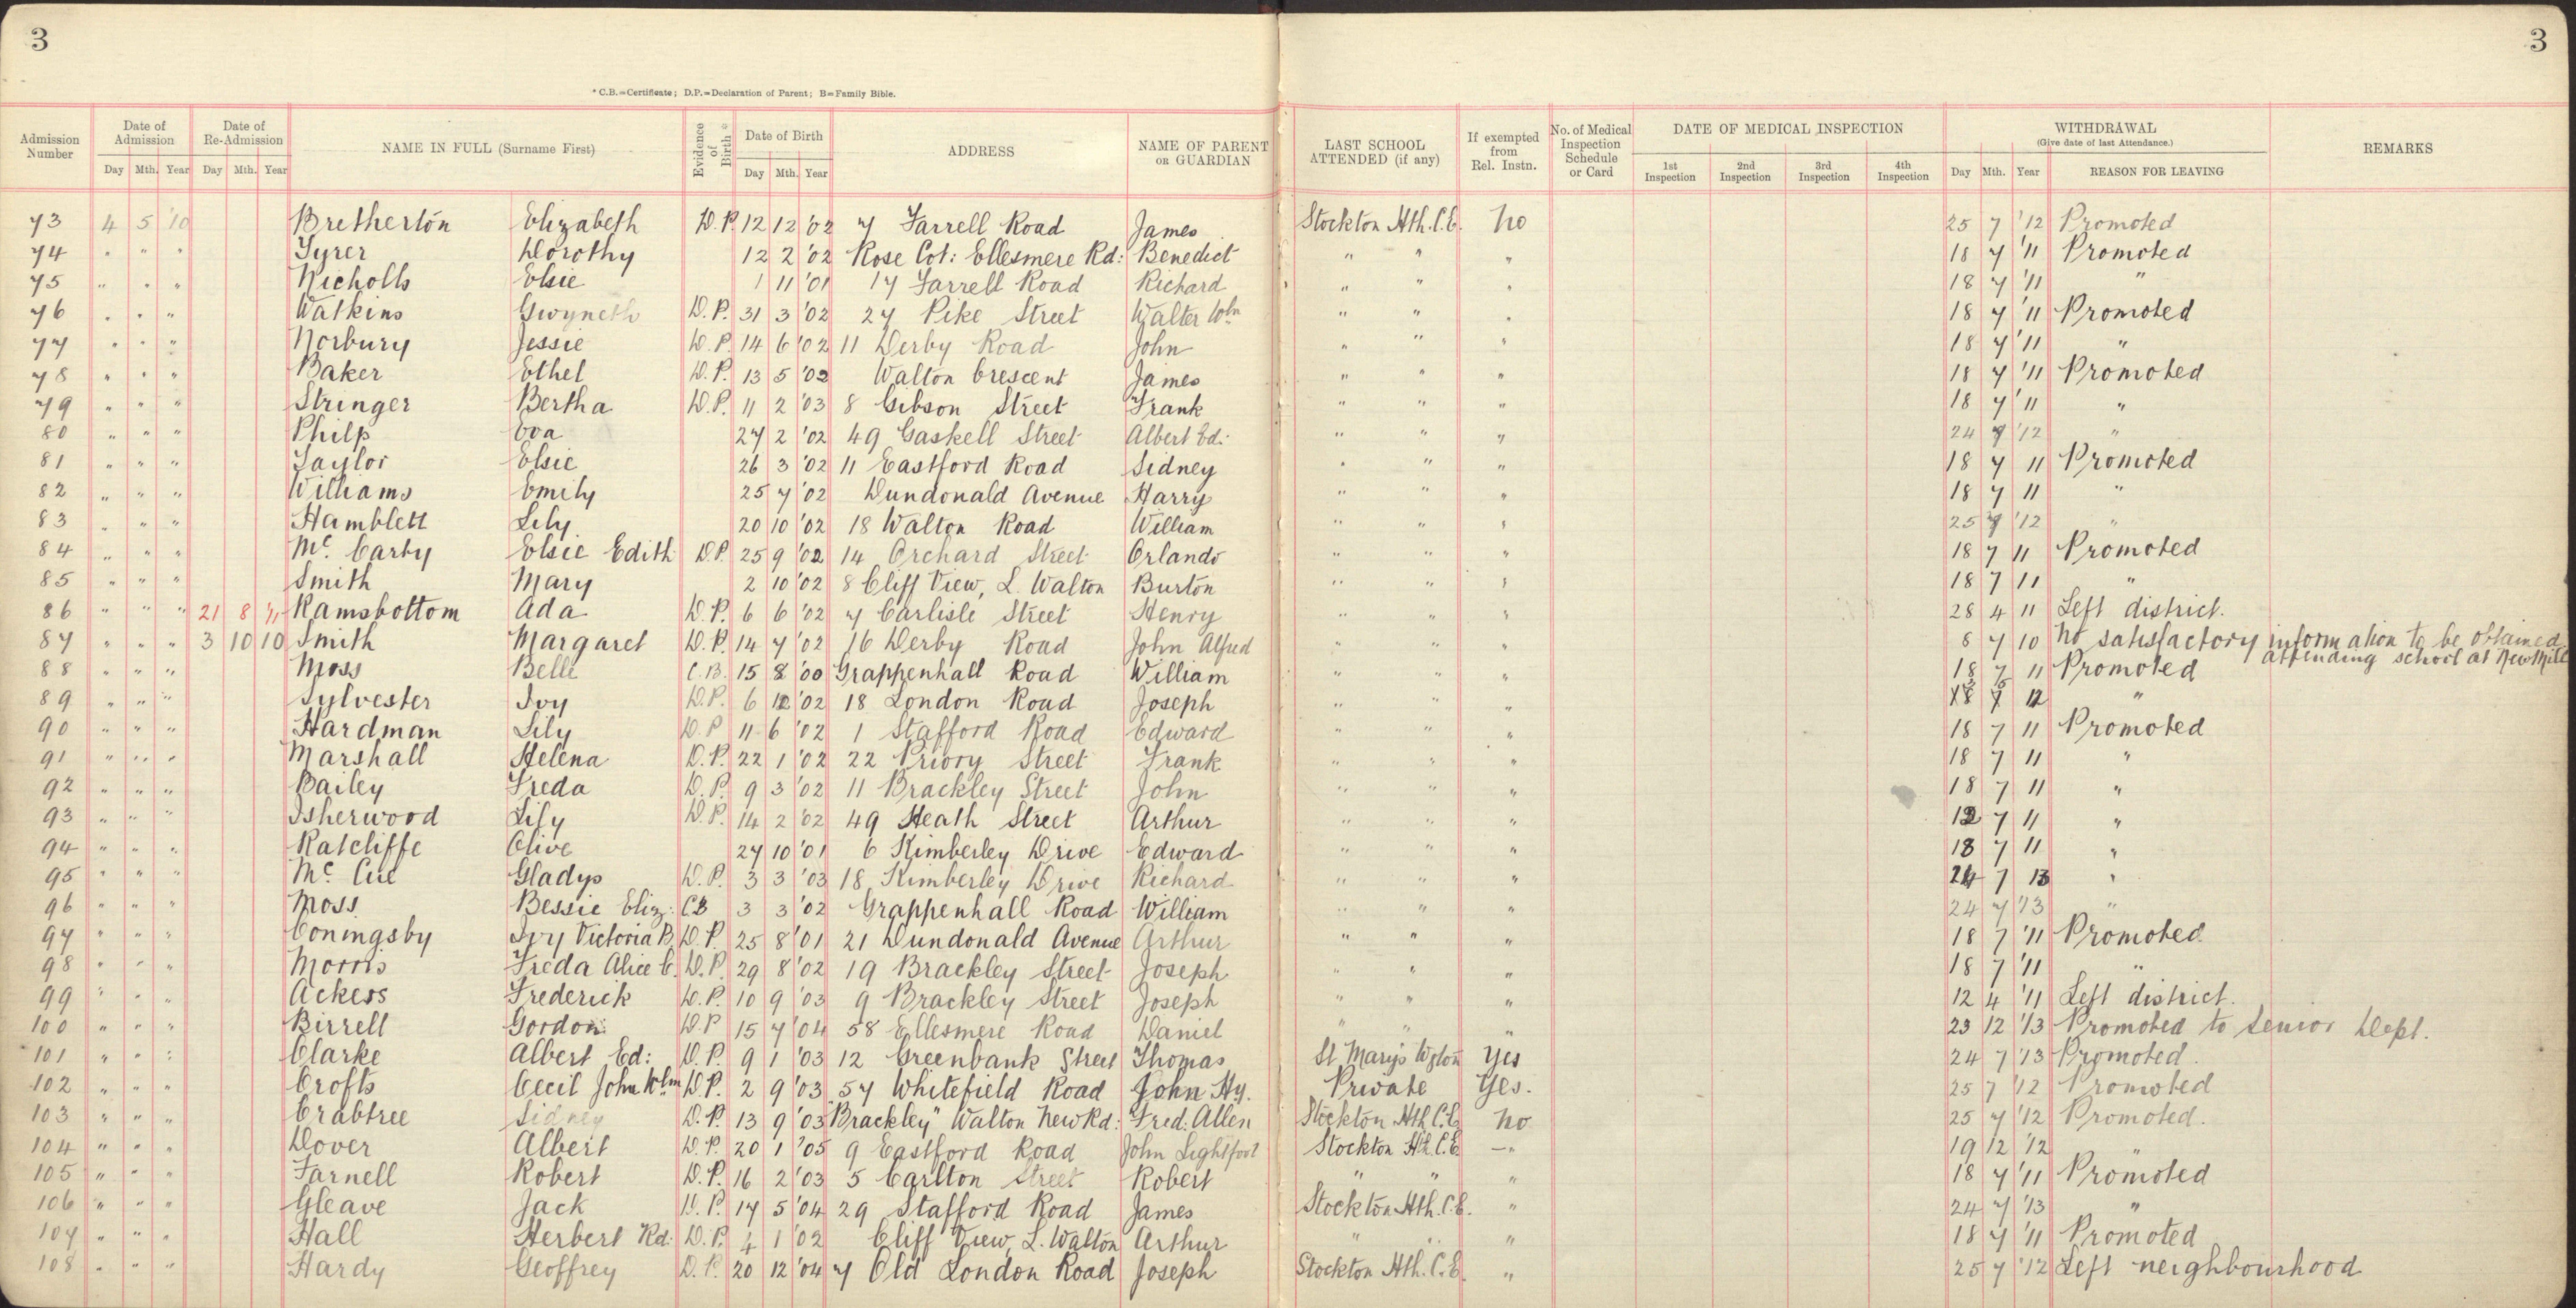 3
3
* C.B.=Certificate; D.P.=Declaration of Parent; B=Family Bible.
Admission Number | Date of Admission Day Mth. Year | Date of Re-Admission Day Mth. Year | NAME IN FULL (Surname First) | Evidence of Birth * | Date of Birth Day Mth. Year | ADDRESS | NAME OF PARENT OR GUARDIAN | LAST SCHOOL ATTENDED (if any) | If exempted from Rel. Instn. | No. of Medical Inspection Schedule or Card | DATE OF MEDICAL INSPECTION 1st Inspection 2nd Inspection 3rd Inspection 4th Inspection | WITHDRAWAL (Give date of last Attendance.) Day Mth. Year REASON FOR LEAVING | REMARKS
73 4 5 '10 Bretherton Elizabeth D.P. 12 12 '02 7 Farrell Road James Stockton Hth. C.E. No 25 7 '12 Promoted
74 " " " Tyrer Dorothy 12 2 '02 Rose Cot: Ellesmere Rd: Benedict " " " 18 7 '11 Promoted
75 " " " Nicholls Elsie 1 11 '01 17 Farrell Road Richard " " " 18 7 '11 "
76 " " " Watkins Gwyneth D.P. 31 3 '02 27 Pike Street Walter Wm " " " 18 7 '11 Promoted
77 " " " Norbury Jessie D.P. 14 6 '02 11 Derby Road John " " " 18 7 '11 "
78 " " " Baker Ethel D.P. 13 5 '02 Walton Crescent James " " " 18 7 '11 Promoted
79 " " " Stringer Bertha D.P. 11 2 '03 8 Gibson Street Frank " " " 18 7 '11 "
80 " " " Philp Eva 27 2 '02 49 Gaskell Street Albert Ed: " " " 24 7 '12 "
81 " " " Taylor Elsie 26 3 '02 11 Eastford Road Sidney " " " 18 7 11 Promoted
82 " " " Williams Emily 25 7 '02 Dundonald Avenue Harry " " " 18 7 11 "
83 " " " Hamblett Lily 20 10 '02 18 Walton Road William " " " 25 7 '12 "
84 " " " Mc. Carthy Elsie Edith D.P. 25 9 '02 14 Orchard Street Orlando " " " 18 7 11 Promoted
85 " " " Smith Mary 2 10 '02 8 Cliff View, L. Walton Burton " " " 18 7 11 "
86 " " " 21 8 '11 Ramsbottom Ada D.P. 6 6 '02 7 Carlisle Street Henry " " " 28 4 11 Left district.
87 " " " 3 10 10 Smith Margaret D.P. 14 7 '02 16 Derby Road John Alfred " " " 8 7 10 No satisfactory information to be obtained
attending school at New Mill
88 " " " Moss Belle C.B. 15 8 '00 Grappenhall Road William " " " 18 7 11 Promoted
89 " " " Sylvester Ivy D.P. 6 12 '02 18 London Road Joseph " " " 12 "
90 " " " Hardman Lily D.P 11 6 '02 1 Stafford Road Edward " " " 18 7 11 Promoted
91 " " " Marshall Helena D.P. 22 1 '02 22 Priory Street Frank " " " 18 7 11 "
92 " " " Bailey Freda D.P. 9 3 '02 11 Brackley Street John " " " 18 7 11 "
93 " " " Isherwood Lily D.P. 14 2 '02 49 Heath Street Arthur " " " 7 11 "
94 " " " Ratcliffe Olive 27 10 '01 6 Kimberley Drive Edward " " " 18 7 11 "
95 " " " Mc. Cue Gladys D.P. 3 3 '03 18 Kimberley Drive Richard " " " 24 7 13 "
96 " " " Moss Bessie Eliz: CB 3 3 '02 Grappenhall Road William " " " 24 7 '13 "
97 " " " Coningsby Ivy Victoria B. D.P. 25 8 '01 21 Dundonald Avenue Arthur " " " 18 7 '11 Promoted.
98 " " " Morris Freda Alice C. D.P. 29 8 '02 19 Brackley Street Joseph " " " 18 7 '11 "
99 " " " Ackers Frederick D.P. 10 9 '03 9 Brackley Street Joseph " " " 12 4 '11 Left district.
100 " " " Birrell Gordon D.P 15 7 '04 58 Ellesmere Road Daniel " " " 23 12 '13 Promoted to Senior Dept.
101 " " " Clarke Albert Ed: D.P. 9 1 '03 12 Greenbank Street Thomas St Mary's Wgton Yes 24 7 '13 Promoted.
102 " " " Crofts Cecil John Wlm D.P. 2 9 '03 57 Whitefield Road John Hy. Private Yes. 25 7 '12 Promoted
103 " " " Crabtree Sidney D.P. 13 9 '03 "Brackley" Walton New Rd: Fred: Allen Stockton Hth C.E. No 25 7 '12 Promoted.
104 " " " Dover Albert D.P. 20 1 '05 9 Eastford Road John Lightfoot Stockton Hth. C.E. " 19 12 '12 "
105 " " " Farnell Robert D.P. 16 2 '03 5 Carlton Street Robert " " " 18 7 '11 Promoted
106 " " " Gleave Jack D.P. 17 5 '04 29 Stafford Road James Stockton Hth. C.E. " 24 7 '13 "
107 " " " Hall Herbert Rd: D.P. 4 1 '02 Cliff View, L. Walton Arthur " " " 18 7 '11 Promoted
108 " " " Hardy Geoffrey D.P. 20 12 '04 7 Old London Road Joseph Stockton Hth. C.E. " 25 7 '12 Left neighbourhood